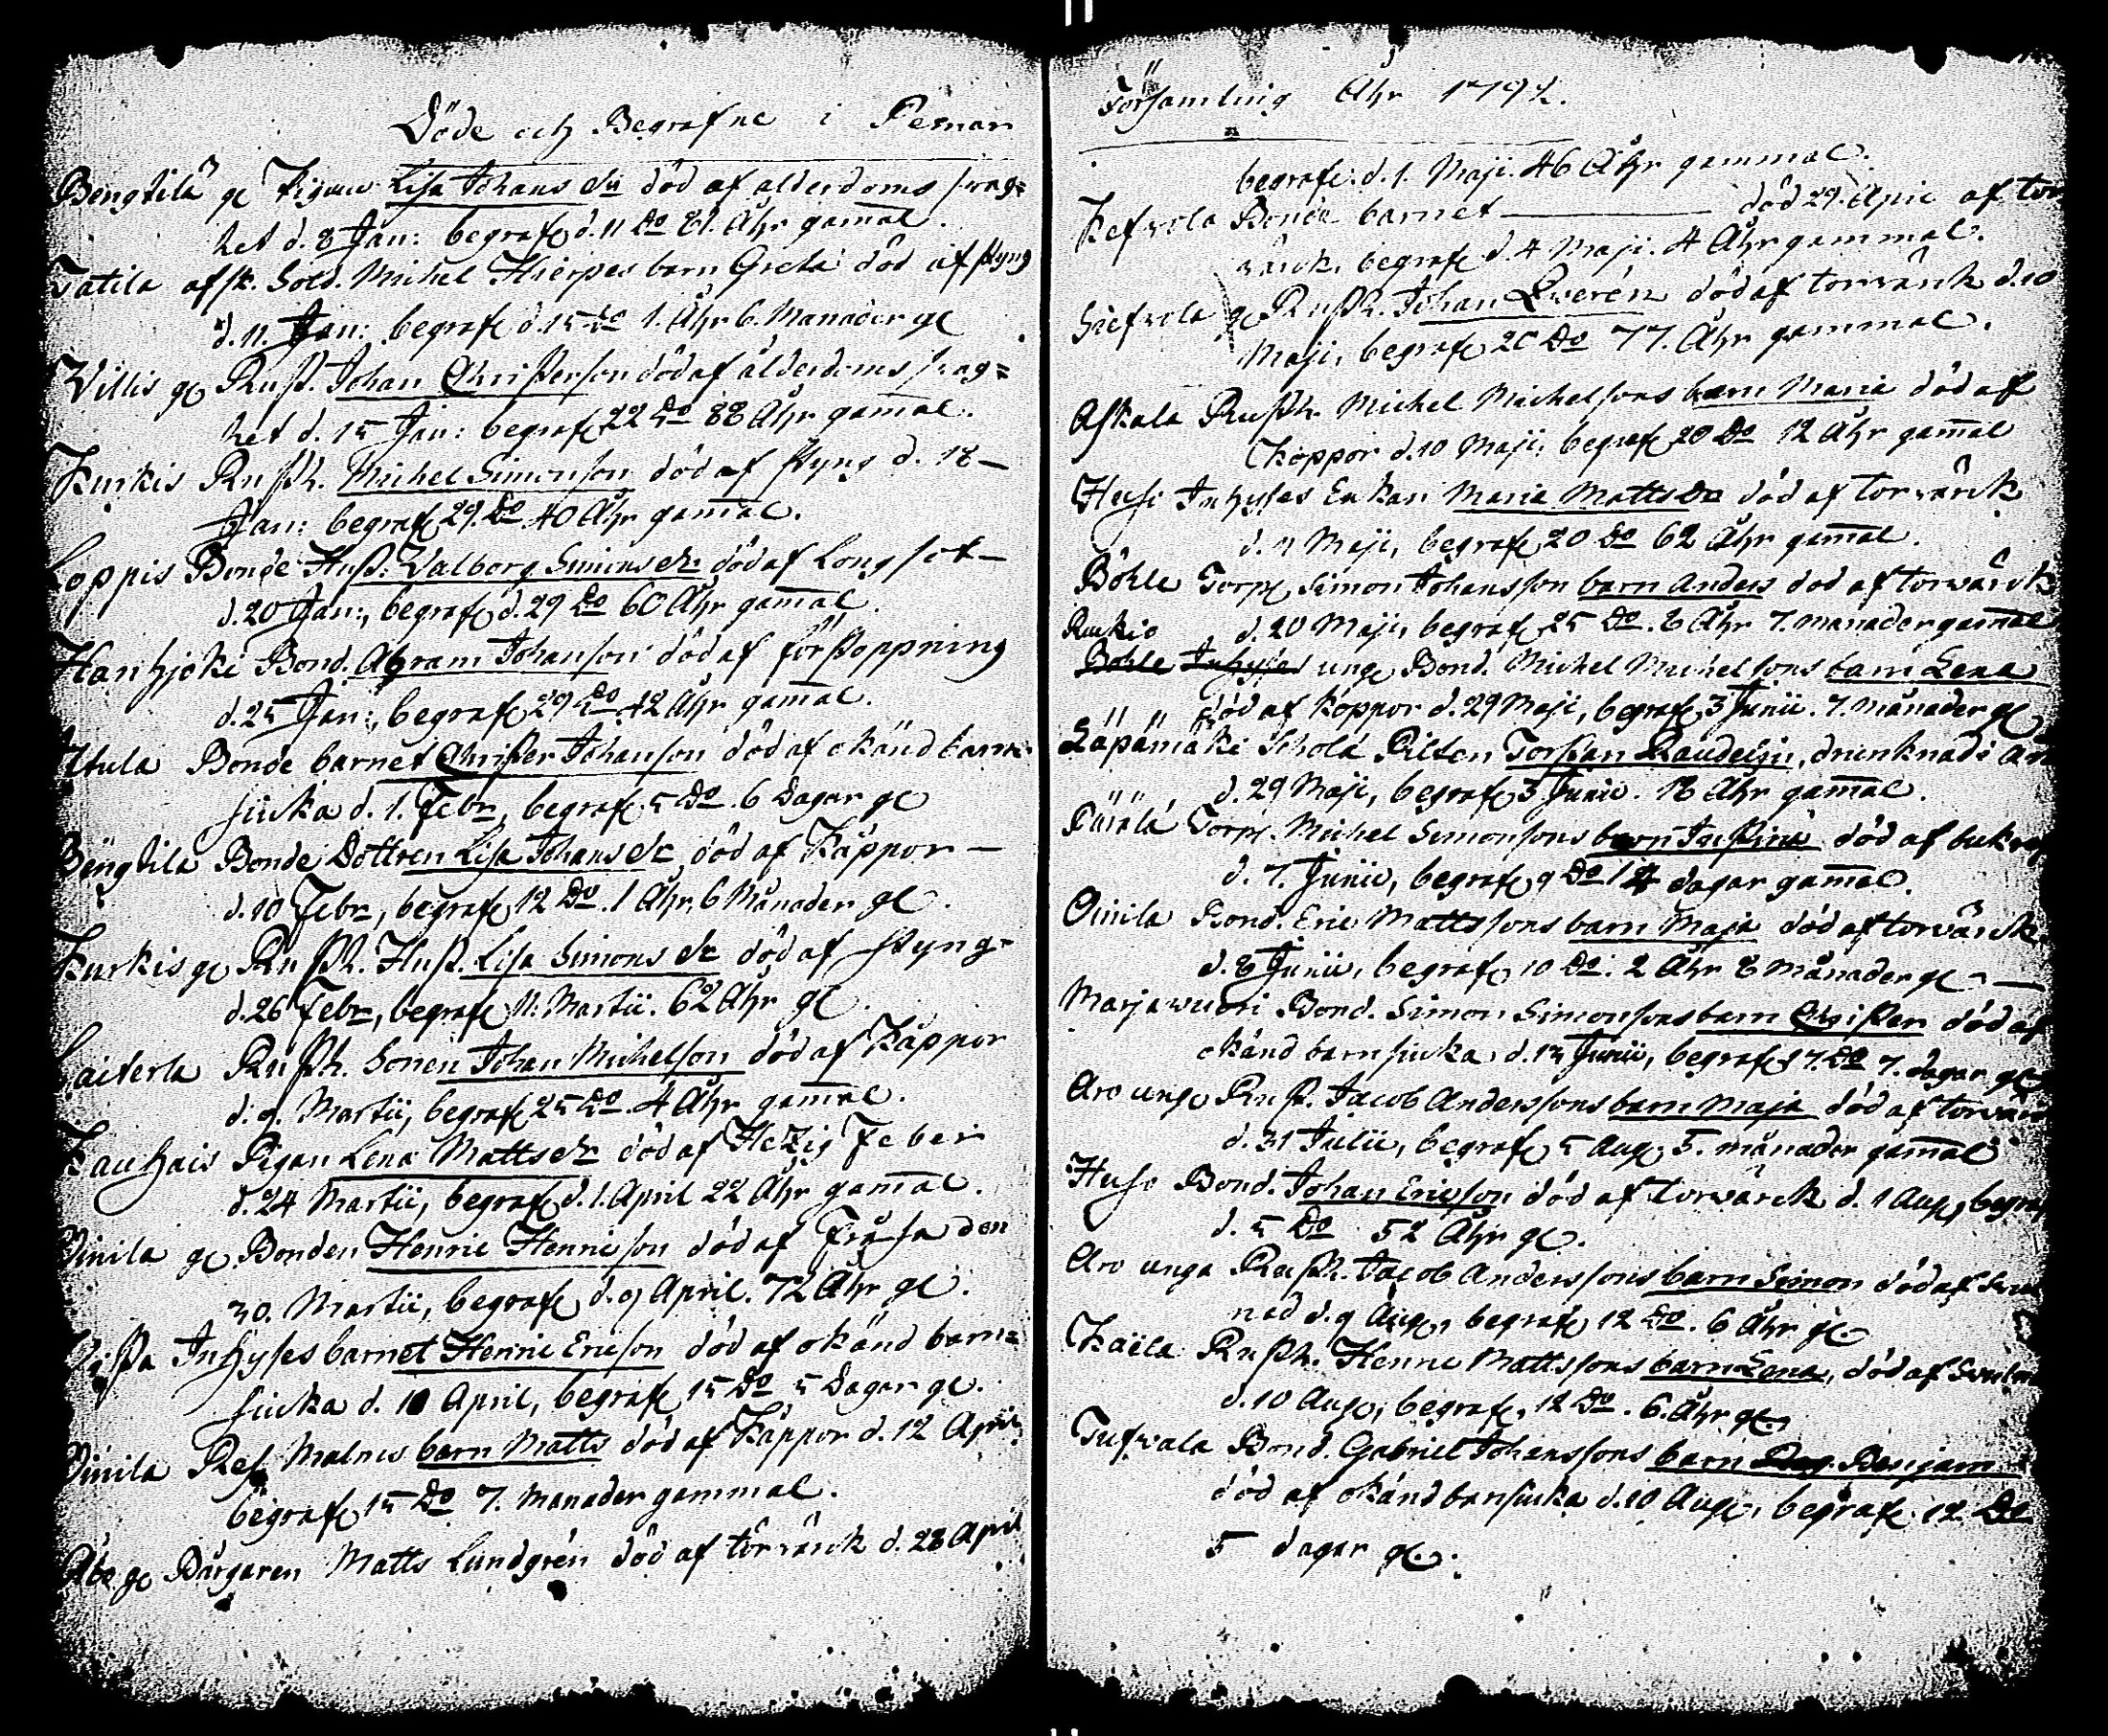 Döde och Begrafne i Pemar
Bengtila ge Pigan Lisa Johans dr död af alderdoms swag=
het d. 8 Jan: begrafe d. 11 Do 81. Åhr gamal.
Tatila afsk. Sold. Michel Hierpes barn Greta död af styng
d. 11. Jan: begrafe d. 15 Do 1. Åhr 6. Manader ge
Villis ge Rust. Johan Christerson död af ålderdoms swag=
het d. 15 Jan: begrafe 22 Do 88 Åhr gamal.
Kurkis Rusth. Michel Simonson död af styng d. 18 —
Jan: begrafe 29. Do 40 Åhr gamal.
Loppis Bonde Hust: Valborg Simons dr. död af Longsot —
d. 20 Jan:, begrafe d. 29 Do 60 Åhr gamal.
Hanhjoki Bond. Abram Johanson död af förstoppning
d. 25 Jan:, begrafe 29 Do 42 Åhr gamal.
Itula Bonde barnet Christer Johanson död af okänd barn
siuka d. 1. Febr, begrafe 5 Do. 6 Dagar ge
Bengtila Bonde Dottren Lisa Johans dr död af Käppor —
d. 10 Febr, begrafe 12 Do. 1 Åhr, 6 Månader ge.
Kurkis ge Rusth. Hust. Lisa Simons dr död af styng
d. 26 Febr, begrafe 11. Martii. 62 Åhr ge.
Saiterla Rusth. Sonen Johan Michelson död af Käppor
d. 9. Martii, begrafe 25 Do. 4 Åhr gamal.
Kauhais Pigan Lena Matts dr död af Hetzig Feber
d. 24 Martii, begrafe d. 1. April 22 Åhr gamal.
Vinila ge Bonden Henric Henricson död af Fråssa den
30. Martii, begrafe d. 9 April. 72 Åhr ge.
Inhyses barnet Henric Ericson död af okänd barn=
siuka d. 10 April, begrafe 15 Do 5 Dagar ge.
Vinila Ref Malmes barn Matts död af Käppor d. 12 April
begrafe 15 Do 7. Manader gammal.
Åbo ge Bårgaren Matts Lundgrén död af torvärck d. 28 April
Församling Åhr 1792.
begrafe: d. 1. Maji. 46 Åhr gammal.
Kefvola Bonde barnet — död 29. April af tor
värck, begrafe d. 4 Maji. 4 Åhr gammal.
Siefvola ge Rusth. Johan Qverén död af torvärck d. 10
Maji, begrafe 20 Do 77. Åhr gammal.
Askala Rusth. Michel Michelsons barn Maria död af
Koppor d. 10 Maji, begrafe 20 Do 12 Åhr gamal
Huso Inhyses Enkan Maria Matts Dr död af torvärck
d. 11 Maji, begrafe 20 Do 62 Åhr gamal.
Böhle Torp Simon Johansson barn Anders död af torvärck
d. 20 Maji, begrafe 25 Do. 2 Åhr 7. manader gamal
Ruckio
Böhle Inhyses unge Bond. Michel Michelsons barn Lena
död af Koppor d. 29 Maji, begrafe 3 Junii. 7. månader ge
Läpämäki Schola Pilten Torstan Raudelin, drunknade
d. 29 Maji, begrafe 3 Junii. 18 Åhr gamal.
Päiälä Torp. Michel Simonsons barn Justina död af bukref
d. 7. Junii, begrafe 9 Do 14 dagar gamal.
Oinila Bond. Eric Mattssons barn Maja död af torvärck
d. 8 Junii, begrafe 10 Do. 2 Åhr 8 månader ge —
Marjawuori Bond. Simon Simonsons barn Christer död af
okänd barnsiuka d. 13 Junii, begrafe 17. Do 7. dagar ge
Aro unge Rust. Jacob Anderssons barn Maja död af torvärck
d. 31 Julii, begrafe 5 Auge 5. månader gamal
Huso Bond. Johan Ericson död af torvärck d. 1 Auge, begraf
d. 5 Do 52 Åhr ge.
Aro unga Rusth. Jacob Anderssons barn Simon död af Svul
nad d. 9 Auge, begrafe 12 Do. 6 Åhr ge.
Kaila Rusth. Henric Mattssons barn Lena, död af Svuln
d. 10 Auge, begrafe, 12 Do. 6. Åhr ge
Tufvala Bond. Gabriel Johanssons barn Benjam
död af okänd barnsiuka d. 10 Auge, begrafe 12 Do
5 dagar ge.